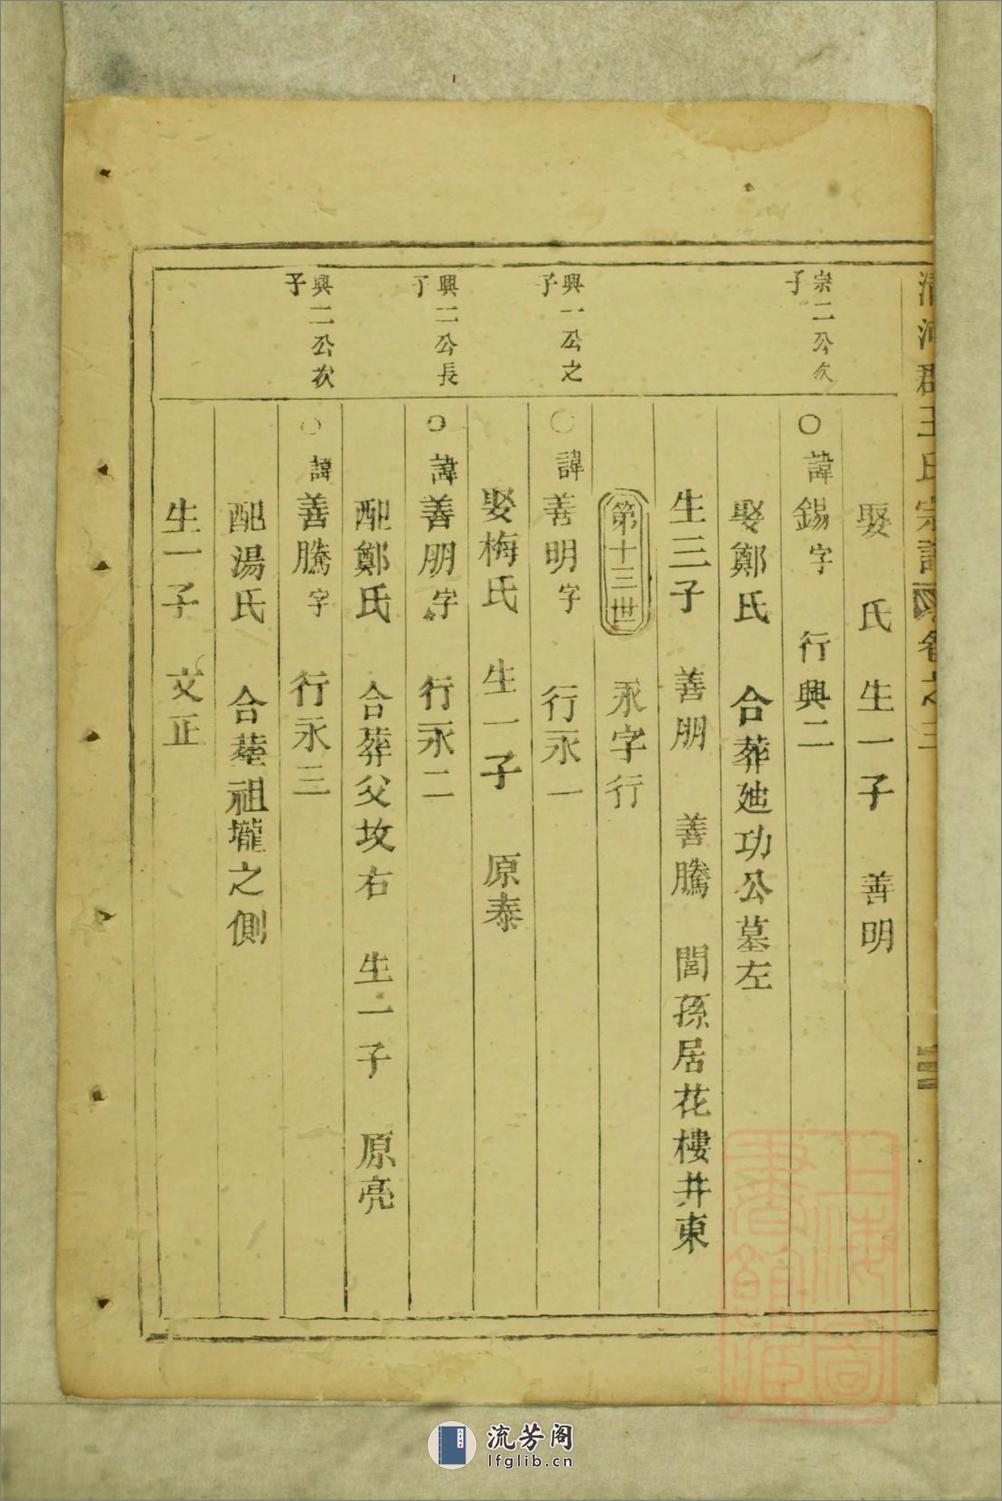 清河郡王氏宗譜 卷之三
娶 氏 生一子 善明
宗二公次子
○諱錫字 行興二
娶鄭氏 合葬迪功公墓左
生三子 善朋 善騰 閏孫居花樓井東
第十三世 永字行
興一公之子
○諱善明字 行永一
娶梅氏 生一子 原泰
興二公長子
○諱善朋字 行永二
配鄭氏 合葬父坟右 生一子 原亮
興二公次子
○諱善騰字 行永三
配湯氏 合塟祖壠之側
生一子 文正
上海圖書館藏
流芳阁
lfglib.cn